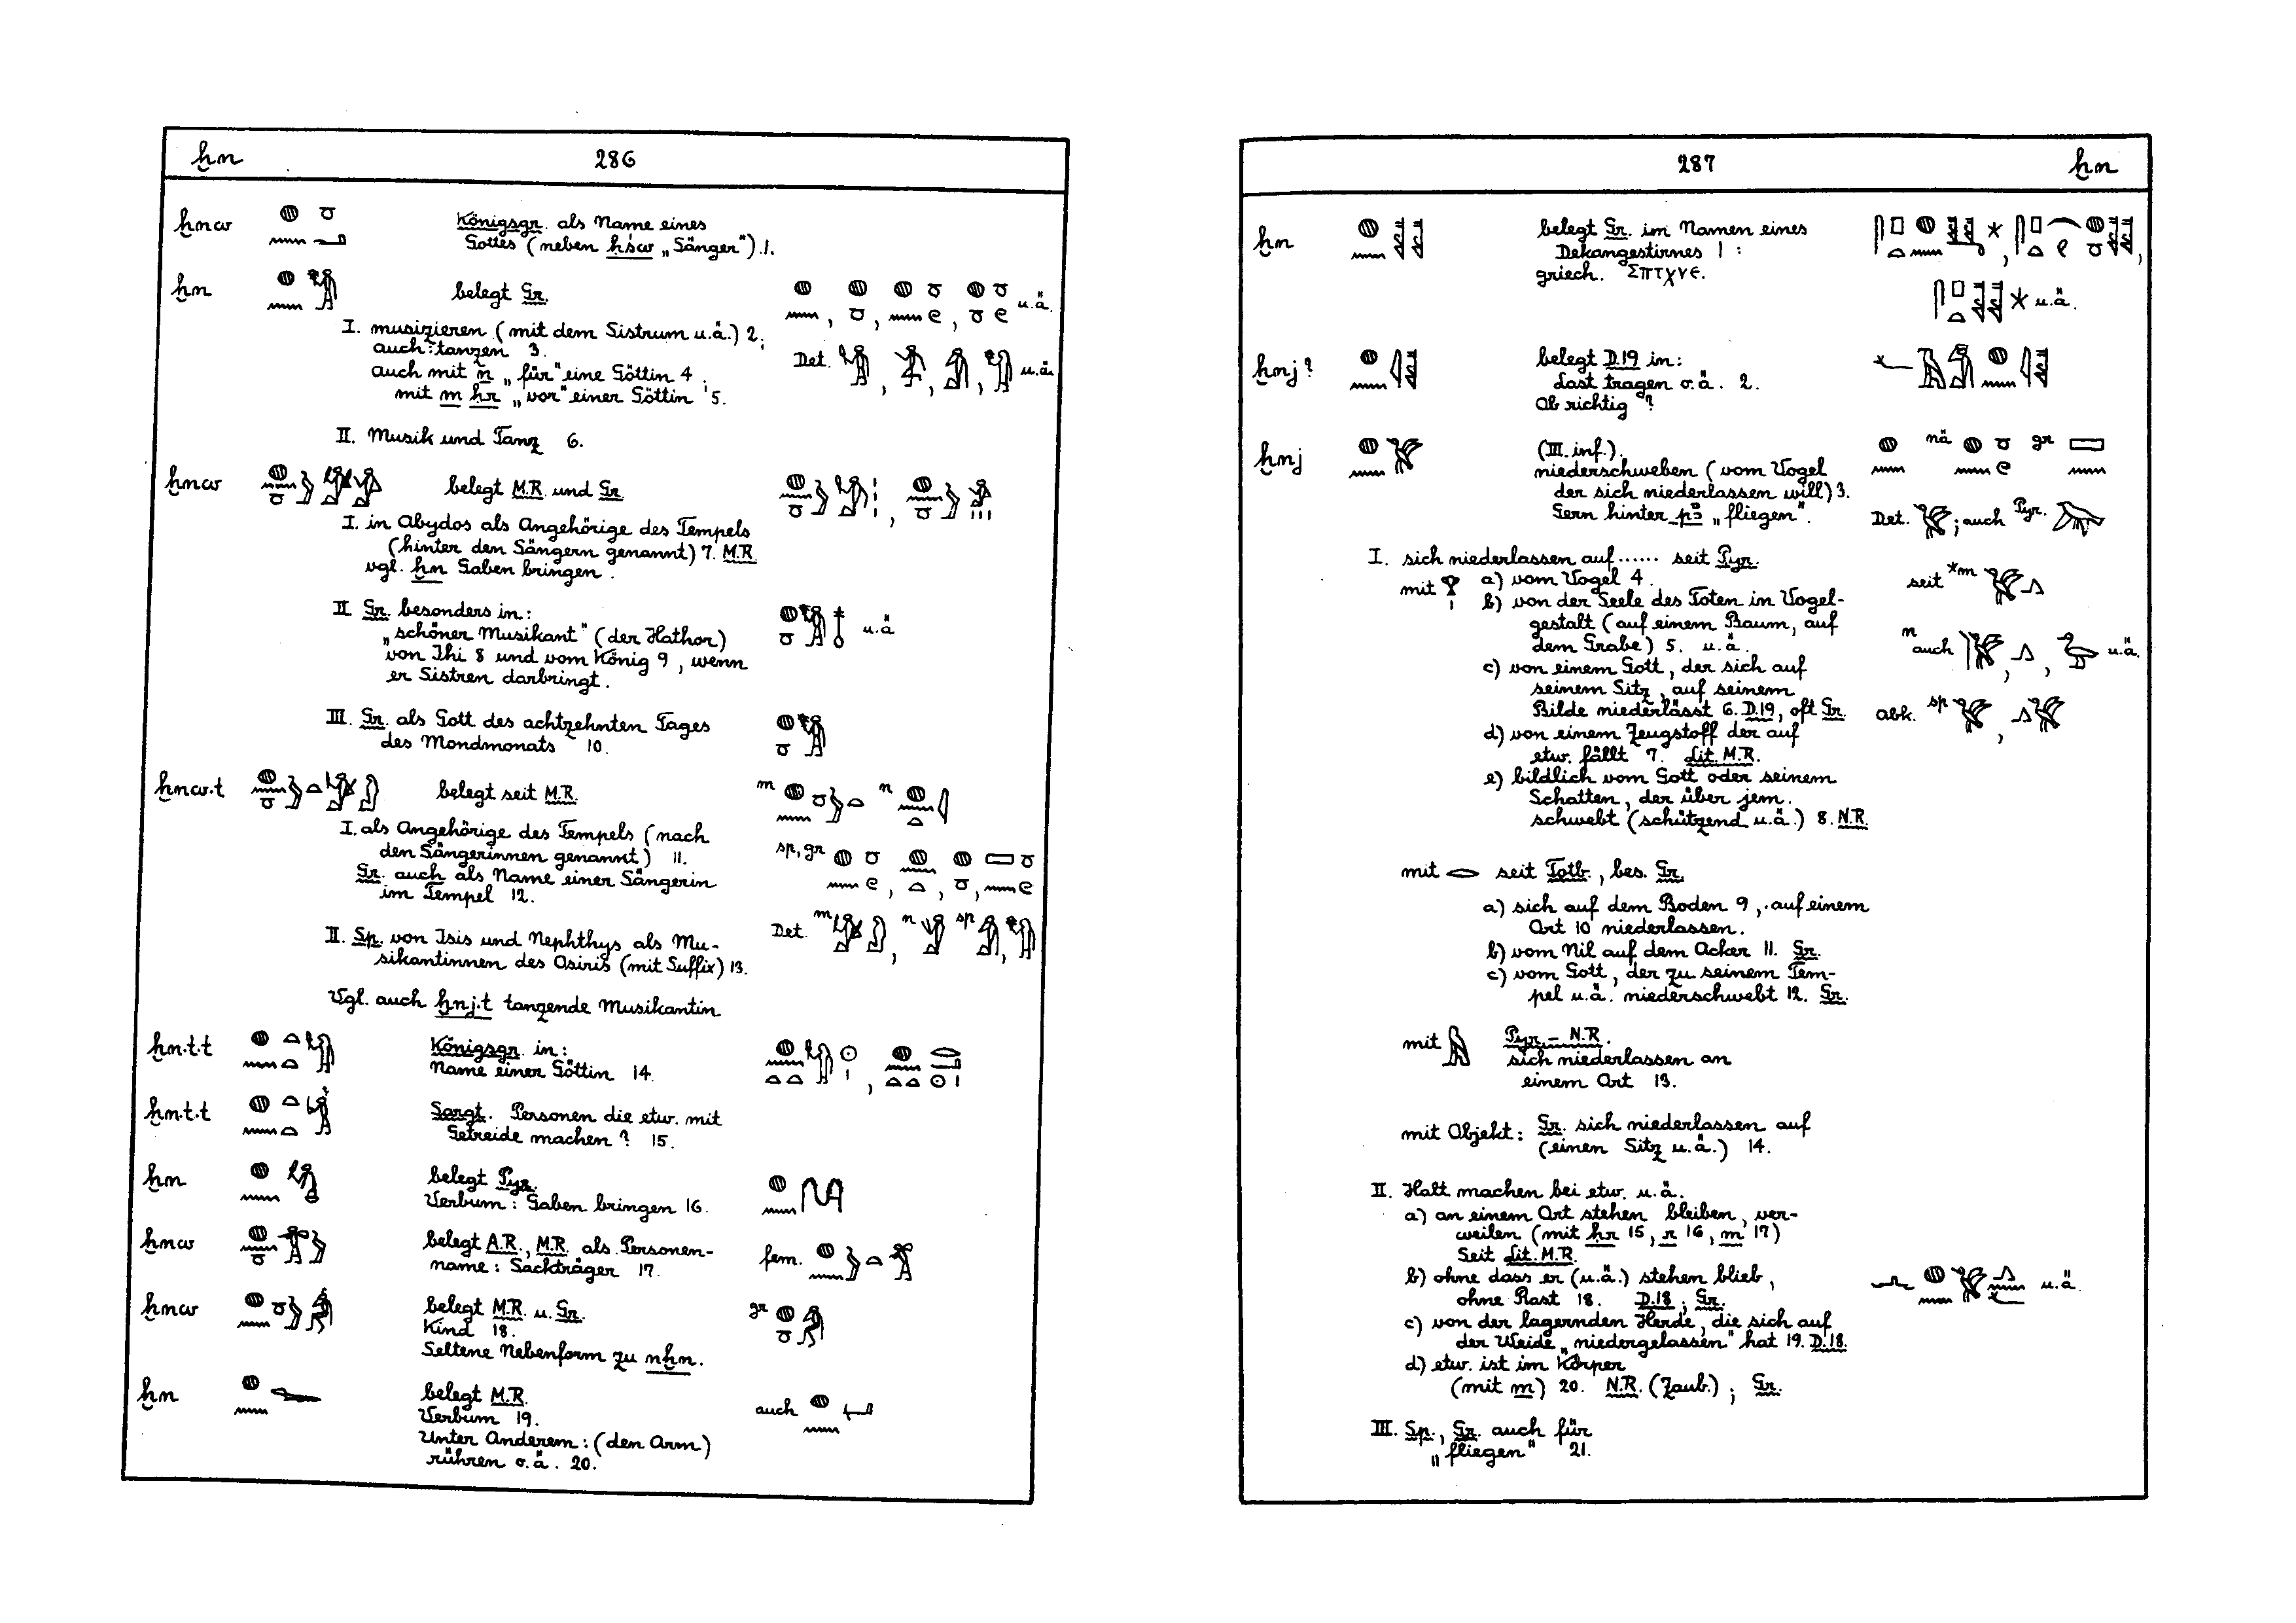 ḫn 286
ḫnw Königsgr. als Name eines
Gottes (neben ḥśw „Sänger“) 1.
ḫn belegt Gr. u.ä.
I. musizieren (mit dem Sistrum u.ä.) 2;
auch: tanzen 3.
auch mit n „für“ eine Göttin 4;
mit m ḥr „vor“ einer Göttin 5.
Det. u.ä.
II. Musik und Tanz 6.
ḫnw belegt M.R. und Gr.
I. in Abydos als Angehörige des Tempels
(hinter den Sängern genannt) 7. M.R.
vgl. ḫn Gaben bringen.
II Gr. besonders in:
„schöner Musikant“ (der Hathor) u.ä
von Ihi 8 und vom König 9, wenn
er Sistren darbringt.
III. Gr. als Gott des achtzehnten Tages
des Mondmonats 10.
ḫnw.t belegt seit M.R. m n
I. als Angehörige des Tempels (nach
den Sängerinnen genannt) 11. sp, gr
Gr. auch als Name einer Sängerin
im Tempel 12.
II. Sp. von Isis und Nephthys als Mu-
sikantinnen des Osiris (mit Suffix) 13.
Det. m n sp
Vgl. auch ḫnj.t tanzende Musikantin
ḫn.t.t Königsgr. in:
Name einer Göttin 14.
ḫn.t.t Sargt. Personen die etw. mit
Getreide machen? 15.
ḫn belegt Pyr.
Verbum: Gaben bringen 16.
ḫnw belegt A.R., M.R. als Personen-
name: Sackträger 17. fem.
ḫnw belegt M.R. u. Gr. gr
Kind 18.
Seltene Nebenform zu nḫn.
ḫn belegt M.R. auch
Verbum 19.
Unter Anderem: (den Arm)
rühren o.ä. 20.
287 ḫn
ḫn belegt Gr. im Namen eines
Dekangestirnes 1:
griech. Σπτχνε.
u.ä.
ḫnj? belegt D.19 in:
Last tragen o.ä. 2.
Ob richtig?
ḫnj (III. inf.). nä gr
niederschweben (vom Vogel
der sich niederlassen will) 3.
Gern hinter pꜣ „fliegen“. Det. ; auch Pyr.
I. sich niederlassen auf...... seit Pyr.
mit a) vom Vogel 4. seit *m
b) von der Seele des Toten in Vogel-
gestalt (auf einem Baum, auf
dem Grabe) 5. u.ä. n auch u.ä.
c) von einem Gott, der sich auf
seinem Sitz, auf seinem
Bilde niederlässt 6. D.19, oft Gr. abk. sp
d) von einem Zeugstoff der auf
etw. fällt 7. Lit. M.R.
e) bildlich vom Gott oder seinem
Schatten, der über jem.
schwebt (schützend u.ä.) 8. N.R.
mit seit Totb., bes. Gr.
a) sich auf dem Boden 9, auf einem
Ort 10 niederlassen.
b) vom Nil auf dem Acker 11. Gr.
c) vom Gott, der zu seinem Tem-
pel u.ä. niederschwebt 12. Gr.
mit Pyr.– N.R.
sich niederlassen an
einem Ort 13.
mit Objekt: Gr. sich niederlassen auf
(einen Sitz u.ä.) 14.
II. Halt machen bei etw. u.ä.
a) an einem Ort stehen bleiben, ver-
weilen (mit ḥr 15, r 16, m 17)
Seit Lit. M.R.
b) ohne dass er (u.ä.) stehen blieb, u.ä.
ohne Rast 18. D.18; Gr.
c) von der lagernden Herde, die sich auf
der Weide „niedergelassen“ hat 19. D.18.
d) etw. ist im Körper
(mit m) 20. N.R. (Zaub.); Gr.
III. Sp., Gr. auch für
„fliegen“ 21.